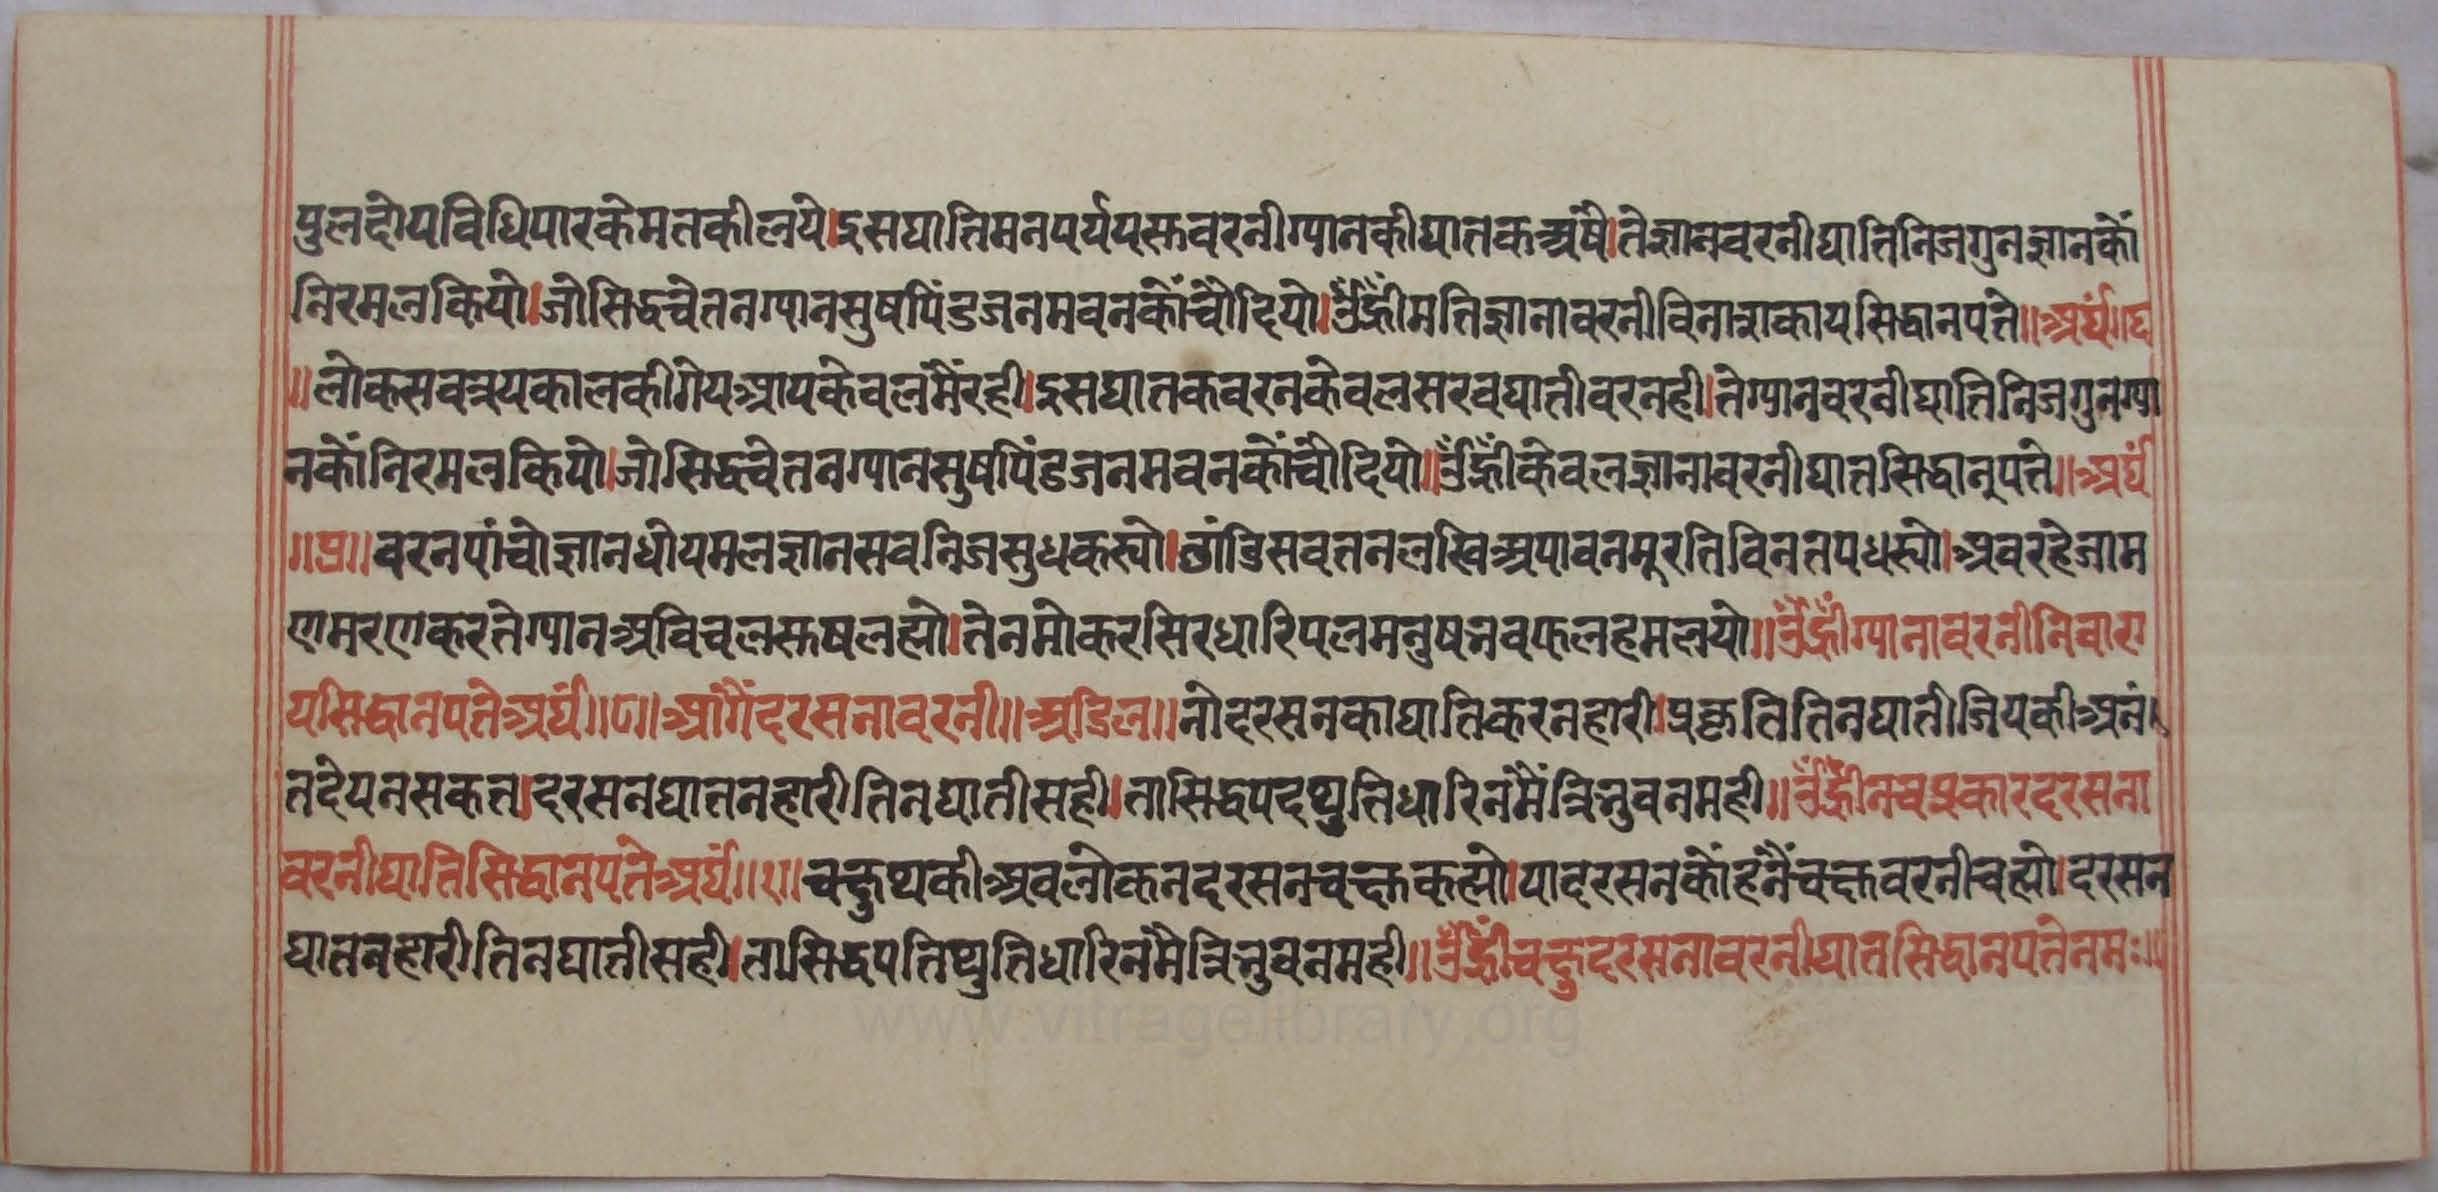 पुलदोयविधिपारकेमतकीलये।इसघातिमनपर्ययस्तवरनीग्यानकीघातकअषै।तेज्ञानवरनीघातिनिजगुनज्ञानकौं
निरमलकियो।जोसिद्धचेतनग्यानसुषपिंडजनमवनकौंचौदियो।ॐह्रींमतिज्ञानावरनीविनाशकायसिद्धानपते॥अर्घं॥घ
॥लोकसवत्रयकालकीगेयआयकेवलमैंरही।इसघातकवरनकेवलसरवघातीवरनही।तेग्यानवरनीघातिनिजगुनग्या
नकौंनिरमलकियो।जोसिद्धचेतनग्यानसुषपिंडजनमवनकौंचौदियो॥ॐह्रींकेवलज्ञानावरनीघातसिद्धानपते॥अर्घं
॥प्र॥वरनपांचोज्ञानधोयमलज्ञानसवनिजसुधकस्यो।छांडिसवतनलखिअपावनमूरतिविनतपधस्यो।अवरहेजाम
णमरणकरतेग्यानअविचलस्तषलह्यो।तेनमोकरसिरधारिपलमनुषनवफलहमलयो॥ॐह्रींग्यानावरनीनिवारा
यसिद्धानपतेअर्घं॥८॥आगैंदरसनावरनी॥अडिल॥नोदरसनकाघातिकरनहारी।प्रकृतितिनघाती।जियकीअनं
तदेयनसकत।दरसनघातनहारीतिनघातीसही।तासिद्धपदथुतिधारिनमैंत्रिभुवनमही॥ॐह्रींनवप्रकारदरसना
वरनीघातिसिद्धानपतेअर्घं॥१॥चक्षुथकीअवलोकनदरसनचक्षकह्यो।यादरसनकौंहनैंचक्षवरनीचह्यो।दरसन
घातनहारीतिनघातीसही।तासिद्धपतिथुतिधारिनमैंत्रिभुवनमही॥ॐह्रींचक्षुदरसनावरनीघातसिद्धानपतेनमः॥
www.vitragelibrary.org